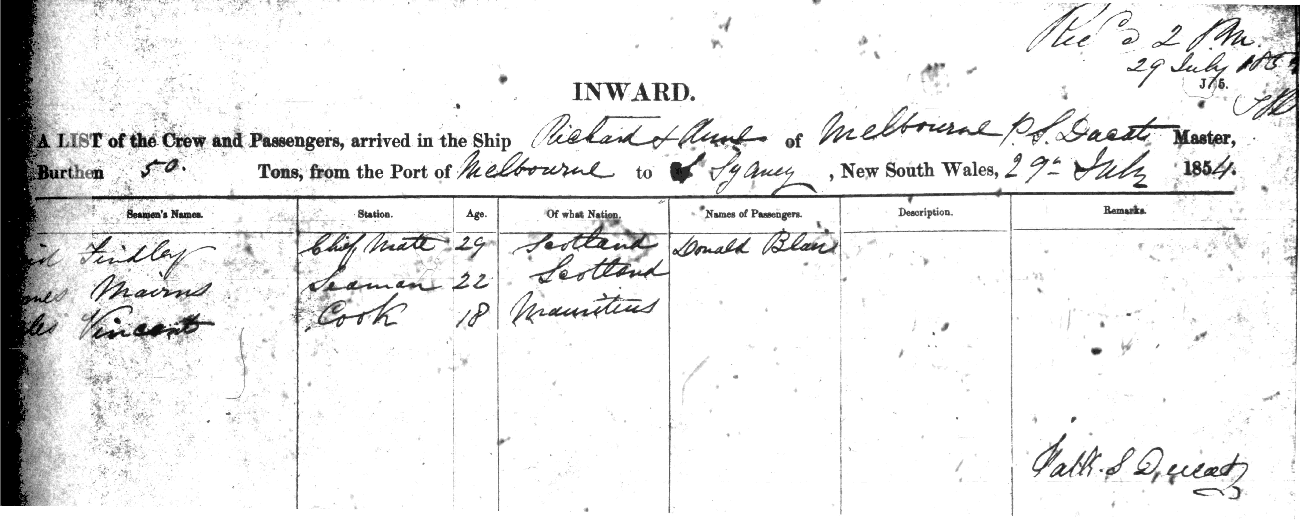 Rec'd 2 P.M.
29 July 185
J/5.
INWARD.
A LIST of the Crew and Passengers, arrived in the Ship Richard & Anne of Melbourne P. S. Ducat Master,
Burthen 50. Tons, from the Port of Melbourne to Sydney, New South Wales, 29th July 1854.
Seamen's Names. Station. Age. Of what Nation. Names of Passengers. Description. Remarks.
Findley Chief Mate 29 Scotland Donald Blair
mes Mairns Seaman 22 Scotland
les Vincent Cook 18 Mauritius
Patk. S Ducat